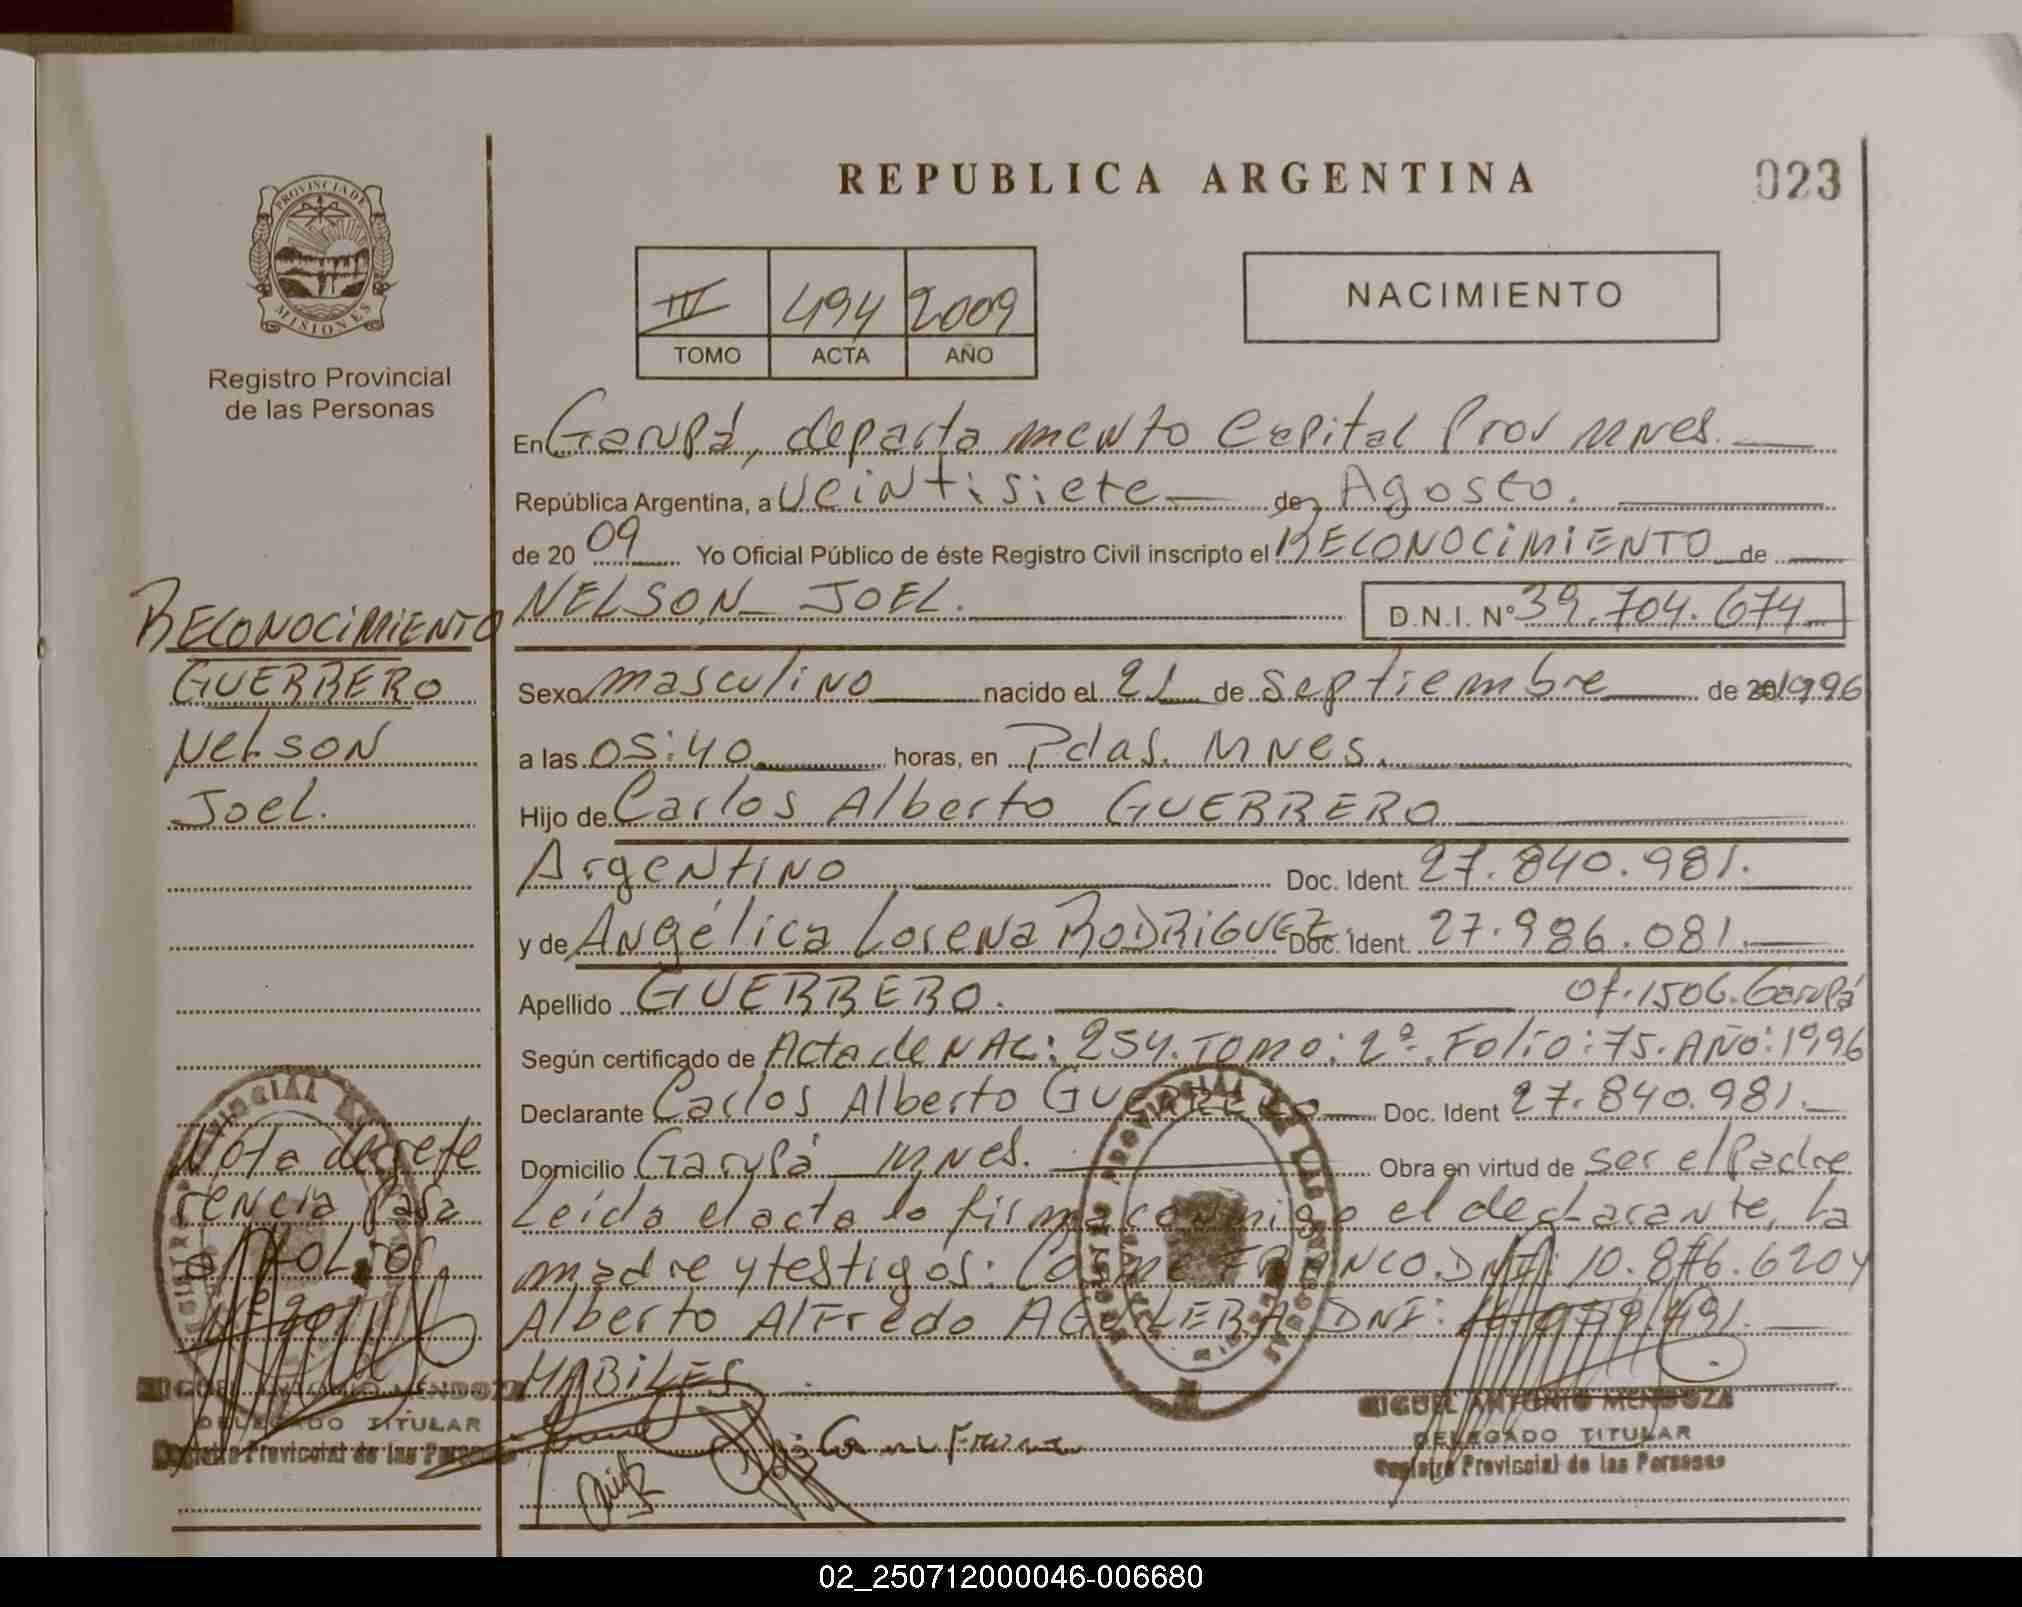 REPUBLICA ARGENTINA
023
PROVINCIA DE
MISIONES
Registro Provincial
de las Personas
III 494 2009
TOMO ACTA AÑO
NACIMIENTO
En Garupá, departamento Capital Prov Mnes.
República Argentina, a veintisiete de Agosto.
de 2009 Yo Oficial Público de éste Registro Civil inscripto el RECONOCIMIENTO de
NELSON JOEL. D.N.I. Nº 39.704.674
Sexo masculino nacido el 21 de septiembre de 20 1996
a las 05:40 horas, en Pdas. Mnes.
Hijo de Carlos Alberto GUERRERO
Argentino Doc. Ident. 27.840.981.
y de Angélica Lorena RODRIGUEZ. Doc. Ident. 27.986.081.
Apellido GUERRERO. Of. 1506. Garupá
Según certificado de Acta de NAC: 254. TOMO: 2º. Folio: 75. AÑO: 1996
Declarante Carlos Alberto GUERRERO Doc. Ident 27.840.981.
Domicilio Garupá Mnes. Obra en virtud de ser el Padre
Leída el acta la firma conmigo el declarante, la
madre y testigos: FRANCO. DNI: 10.876.620 y
Alberto Alfredo AGUILERA DNI:
HABILES
RECONOCIMIENTO
GUERRERO
Nelson
Joel.
Nota de refe
rencia pasa
a FOLIO
MIGUEL ANTONIO MENDOZA
DELEGADO TITULAR
Registro Provincial de las Personas
MIGUEL ANTONIO MENDOZA
DELEGADO TITULAR
Registro Provincial de las Personas
02_250712000046-006680